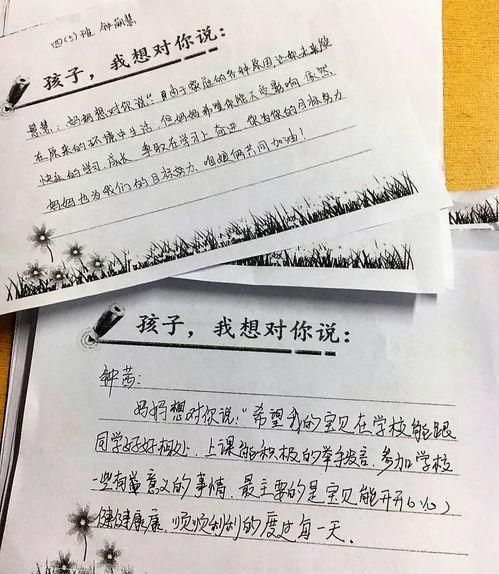 四(5)班 钟慧慧
孩子，我想对你说：
慧慧：妈妈想对你说："因为家庭的各种原因让你未来能
在原来的环境中生活，但妈妈希望你能不受影响，依然
快乐的学习，成长，争取在学习上奋进，你为你的目标努力
妈妈也为我们的目标努力，咱娘俩共同加油！
孩子，我想对你说：
钟茜：
妈妈想对你说，"希望我的宝贝在学校能跟
同学好好相处，上课能积极的举手发言，参加学校
一些有意义的事情，最主要的是宝贝能开开心心
健健康康，顺顺利利的度过每一天。